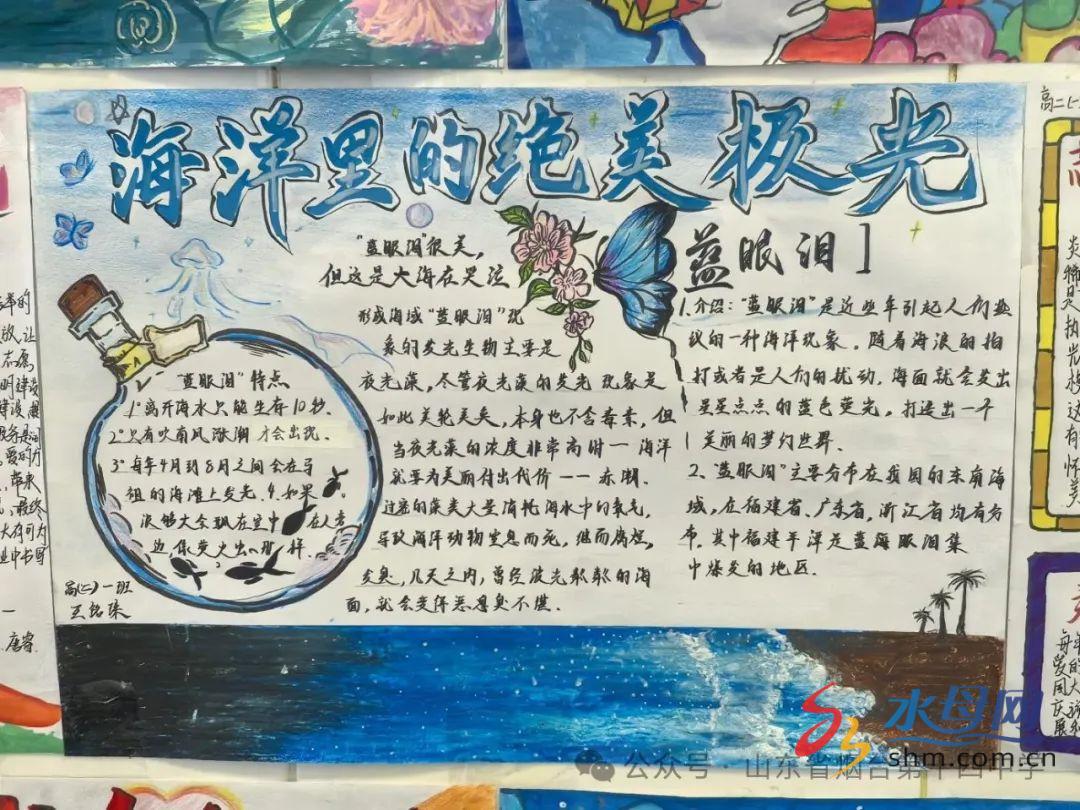 海洋里的绝美极光
"蓝眼泪"很美,
但这是大海在哭泣
形成海域"蓝眼泪"现
象的发光生物主要是
夜光藻,尽管夜光藻的发光现象是
如此美轮美奂,本身也不含毒素,但
当夜光藻的浓度非常高时一海洋
就要为美丽付出代价——赤潮.
过密的藻类大量消耗海水中的氧气,
导致海洋动物窒息而死,继而腐烂,
发臭,几天之内,曾经波光粼粼的海
面,就会变得恶臭不堪.
"蓝眼泪"特点
1°离开海水只能生存10秒.
2°只有吹南风涨潮才会出现.
3°每年4月到8月之间会在马
祖的海滩上发光.4.如果
浪够大会飘在空中 在人旁
边像萤火虫那样.
高(二)一班
蓝眼泪
1.介绍:"蓝眼泪"是近些年引起人们热
议的一种海洋现象.随着海浪的拍
打或者是人们的扰动.海面就会发出
星星点点的蓝色荧光,打造出一个
美丽的梦幻世界.
2、"蓝眼泪"主要分布在我国的东南海
域,在福建省、广东省,浙江省均有分
布.其中福建平洋是蓝海眼泪集
中爆发的地区.
高二(一
水母网
shm.com.cn
公众号·山东省烟台第十四中学